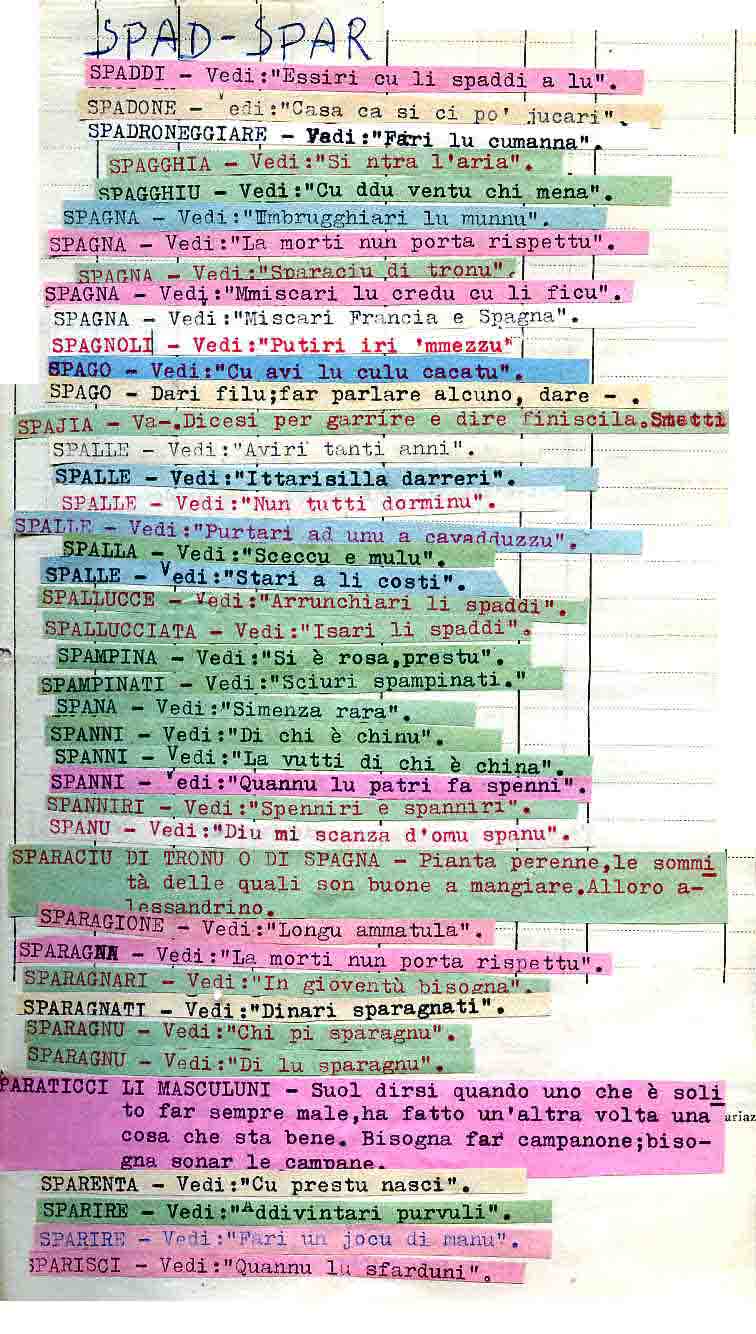 SPAD-SPAR
SPADDI - Vedi:"Essiri cu li spaddi a lu".
SPADONE - Vedi:"Casa ca si ci po' jucari".
SPADRONEGGIARE - Vadi:"Fari lu cumanna".
SPAGGHIA - Vedi:"Si ntra l'aria".
SPAGGHIU - Vedi:"Cu ddu ventu chi mena".
SPAGNA - Vedi:"Imbrugghiari lu munnu".
SPAGNA - Vedi:"La morti nun porta rispettu".
SPAGNA - Vedi:"Sparaciu di tronu".
SPAGNA - Vedi:"Mmiscari lu credu cu li ficu".
SPAGNA - Vedi:"Miscari Francia e Spagna".
SPAGNOLI - Vedi:"Putiri iri 'mmezzu"
SPAGO - Vedi:"Cu avi lu culu cacatu".
SPAGO - Dari filu;far parlare alcuno, dare - .
SPAJIA - Va-.Dicesi per garrire e dire finiscila.Smetti
SPALLE - Vedi:"Aviri tanti anni".
SPALLE - Vedi:"Ittarisilla darreri".
SPALLE - Vedi:"Nun tutti dorminu".
SPALLE - Vedi:"Purtari ad unu a cavadduzzu".
SPALLA - Vedi:"Sceccu e mulu".
SPALLE - Vedi:"Stari a li costi".
SPALLUCCE - Vedi:"Arrunchiari li spaddi".
SPALLUCCIATA - Vedi:"Isari li spaddi".
SPAMPINA - Vedi:"Si è rosa,prestu".
SPAMPINATI - Vedi:"Sciuri spampinati."
SPANA - Vedi:"Simenza rara".
SPANNI - Vedi:"Di chi è chinu".
SPANNI - Vedi:"La vutti di chi è china".
SPANNI - Vedi:"Quannu lu patri fa spenni".
SPANNIRI - Vedi:"Spenniri e spanniri".
SPANU - Vedi:"Diu mi scanza d'omu spanu".
SPARACIU DI TRONU O DI SPAGNA - Pianta perenne,le sommi
tà delle quali son buone a mangiare.Alloro a-
lessandrino.
SPARAGIONE - Vedi:"Longu ammatula".
- Vedi:"La morti nun porta rispettu".
SPARAGNARI - Vedi:"In gioventù bisogna".
SPARAGNATI - Vedi:"Dinari sparagnati".
SPARAGNU - Vedi:"Chi pi sparagnu".
SPARAGNU - Vedi:"Di lu sparagnu".
PARATICCI LI MASCULUNI - Suol dirsi quando uno che è soli
to far sempre male,ha fatto un'altra volta una
uriaz
cosa che sta bene. Bisogna far campanone;biso-
gna sonar le campane.
SPARENTA - Vedi:"Cu prestu nasci".
SPARIRE - Vedi:"Addivintari purvuli".
SPARIRE - Vedi:"Fari un jocu di manu".
SPARISCI - Vedi:"Quannu lu sfarduni".